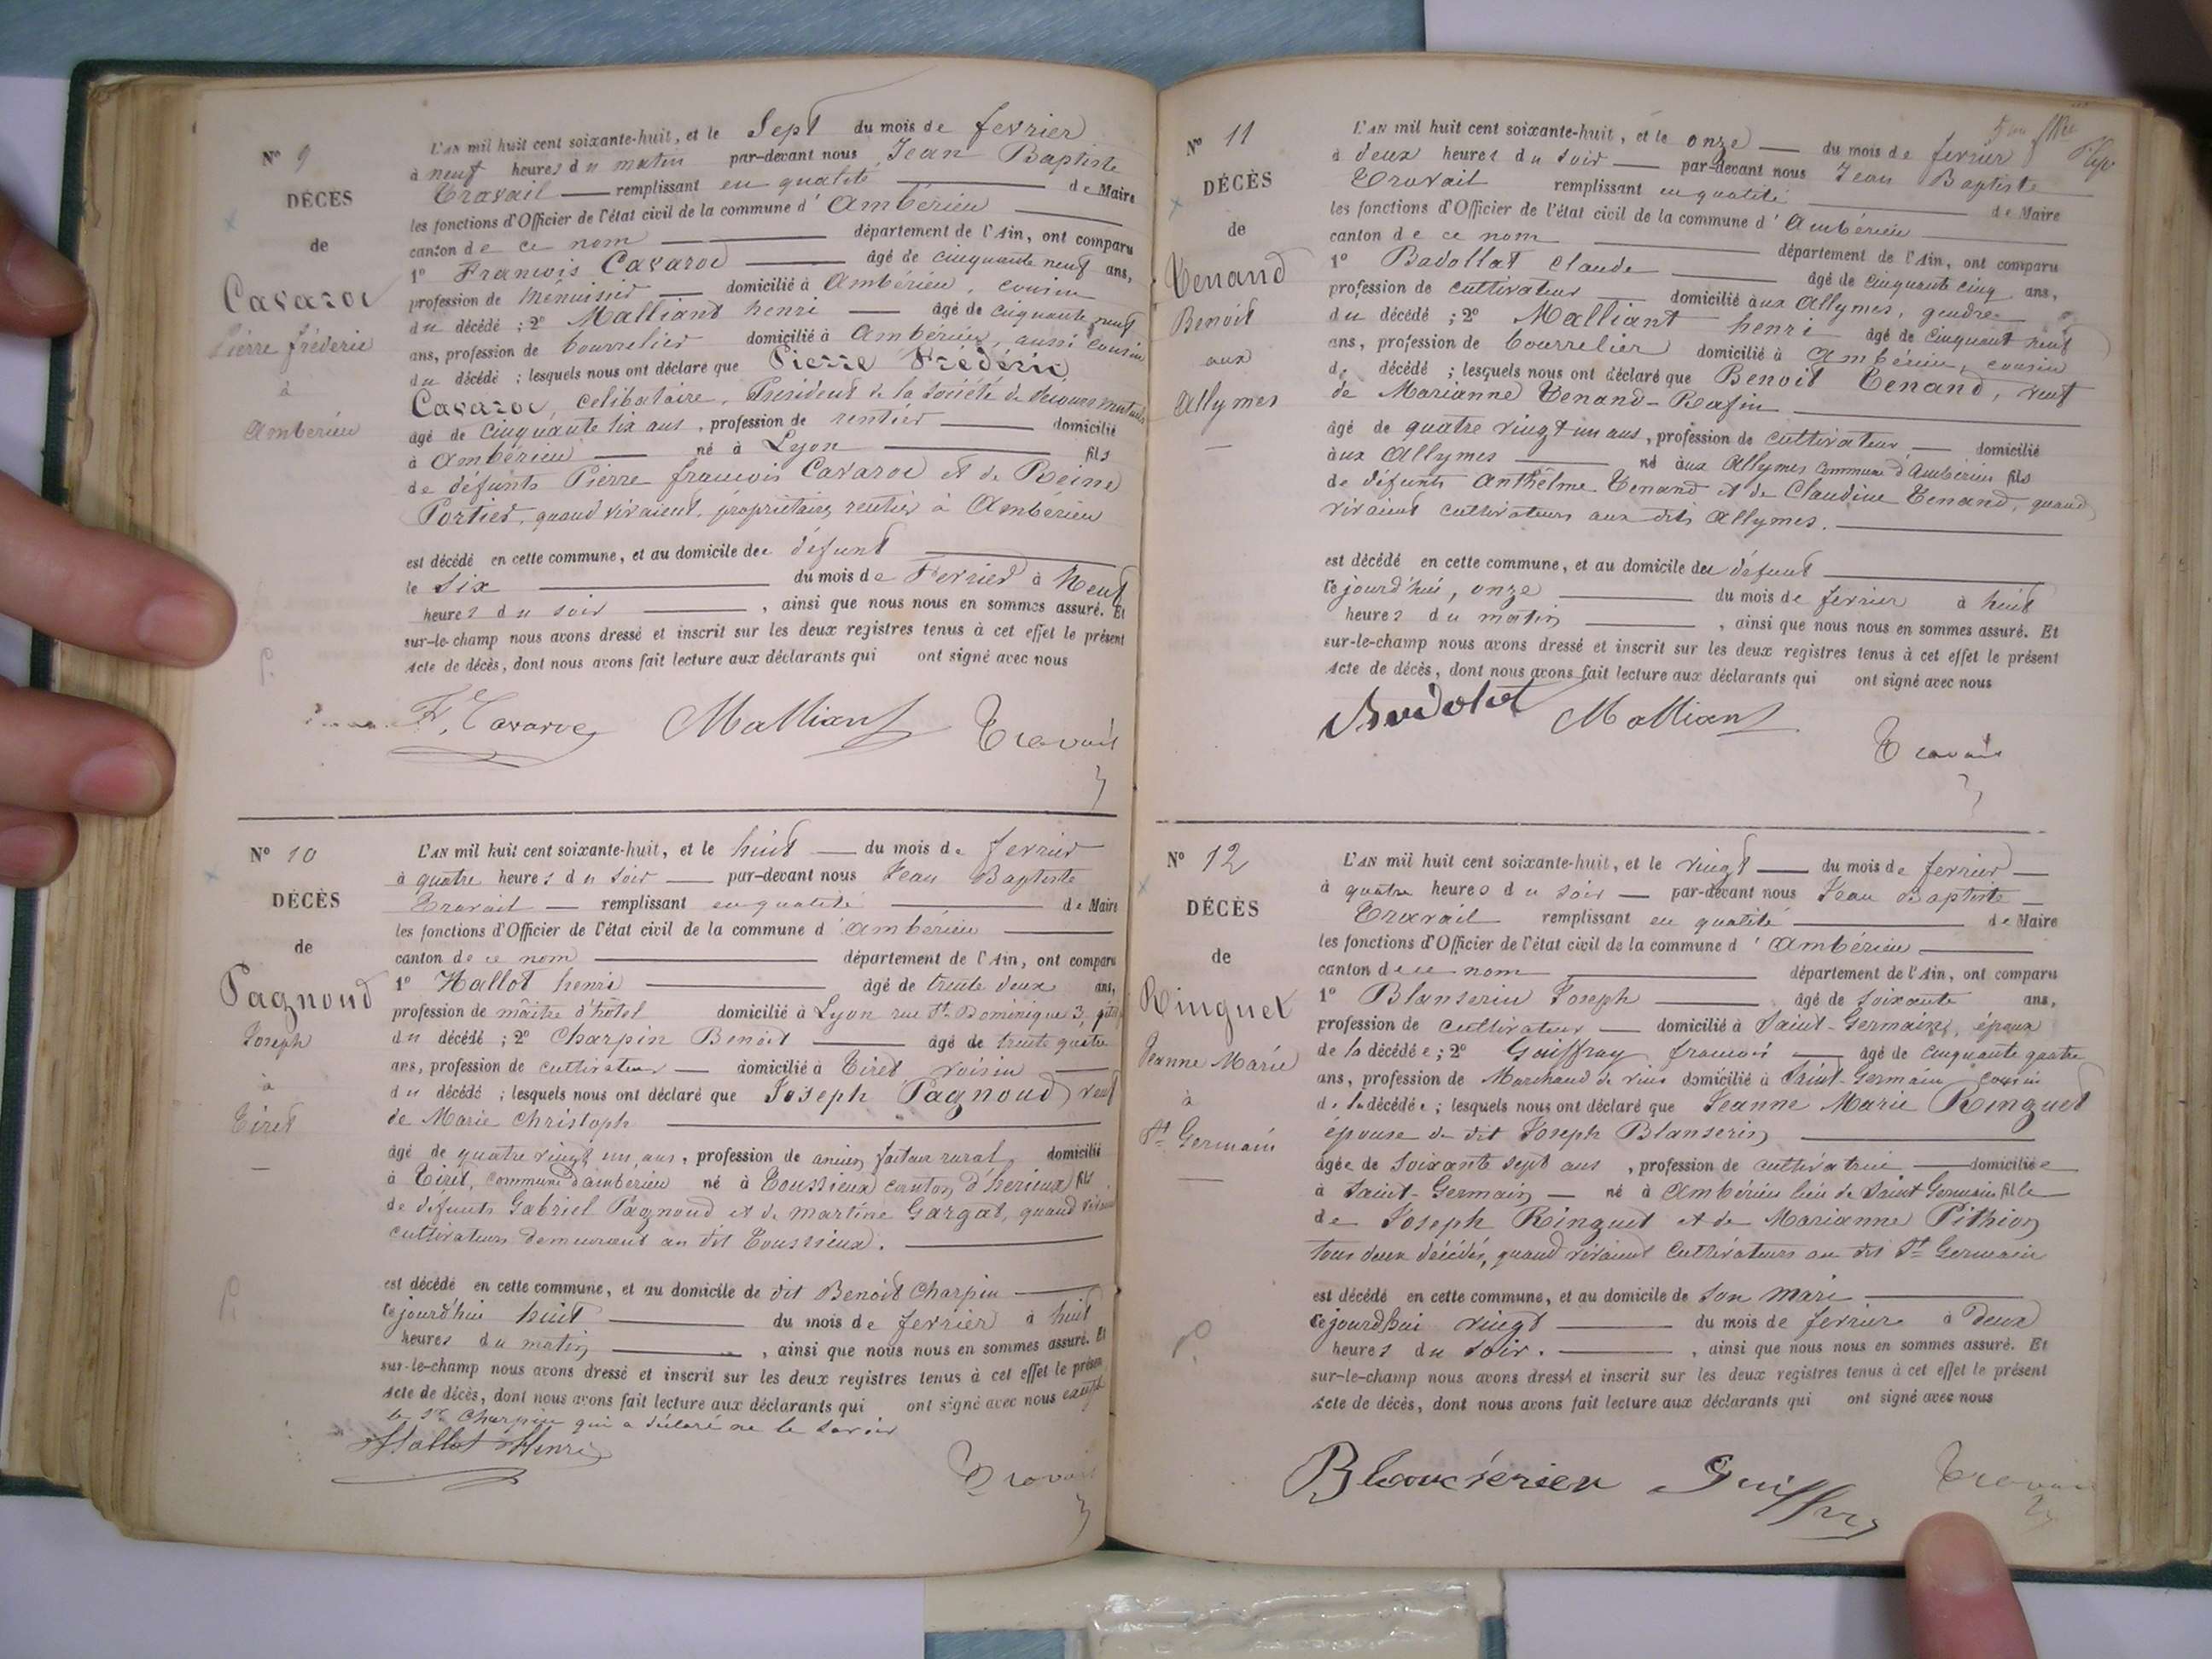 N° 9
DÉCÈS
de
Cavaroc
Pierre fréderic
à
Ambérieu
L'AN mil huit cent soixante-huit, et le Sept du mois de fevrier
à neuf heures du matin par-devant nous Jean Baptiste
Travail remplissant en qualité de Maire
les fonctions d'Officier de l'état civil de la commune d'Ambérieu
canton de ce nom département de l'Ain, ont comparu
1° Francois Cavaroc âgé de cinquante neuf ans,
profession de Menuisier domicilié à Ambérieu, cousin
du décédé ; 2° Malliant henri âgé de cinquante neuf
ans, profession de bourrelier domicilié à Ambérieu, aussi cousin
du décédé ; lesquels nous ont déclaré que Pierre Frédéric
Cavaroc, celibataire, Président de la Société de Secours mutuels
âgé de cinquante six ans, profession de rentier domicilié
à Ambérieu né à Lyon fils
de défunts Pierre francois Cavaroc et de Reine
Portier, quand vivaient, propriétaires rentiers à Ambérieu
est décédé en cette commune, et au domicile de défunt
le Six du mois de Fevrier à Neuf
heures du soir, ainsi que nous nous en sommes assuré. Et
sur-le-champ nous avons dressé et inscrit sur les deux registres tenus à cet effet le présent
acte de décès, dont nous avons fait lecture aux déclarants qui ont signé avec nous
F. Cavaroc Malliant Travail
N° 10
DÉCÈS
de
Pagnoud
Joseph
à
Tiret
L'AN mil huit cent soixante-huit, et le huit du mois de fevrier
à quatre heures du soir par-devant nous Jean Baptiste
Travail remplissant en qualité de Maire
les fonctions d'Officier de l'état civil de la commune d'Ambérieu
canton de ce nom département de l'Ain, ont comparu
1° Hallot henri âgé de trente deux ans,
profession de maitre d'hôtel domicilié à Lyon rue St Dominique 3,
du décédé ; 2° Charpin Benoit âgé de trente quatre
ans, profession de cultivateur domicilié à Tiret voisin
du décédé ; lesquels nous ont déclaré que Joseph Pagnoud veuf
de Marie Christoph
âgé de quatre vingt un ans, profession de ancien facteur rural, domicilié
à Tiret, commune d'ambérieu né à Toussieux canton d'hérieux fils
de défunts Gabriel Pagnoud et de Martine Gargat, quand vivaient
cultivateurs demeurant au dit Toussieux.
est décédé en cette commune, et au domicile de dit Benoit Charpin
Cejourd'hui huit du mois de fevrier à huit
heures du matin, ainsi que nous nous en sommes assuré. Et
sur-le-champ nous avons dressé et inscrit sur les deux registres tenus à cet effet le présent
acte de décès, dont nous avons fait lecture aux déclarants qui ont signé avec nous excepté
le Sr Charpin qui a déclaré ne le savoir
Hallot Henri
Travail
N° 11
DÉCÈS
de
Tenand
Benoit
aux
Allymes
L'AN mil huit cent soixante-huit, et le onze du mois de fevrier
à deux heures du soir par-devant nous Jean Baptiste
Travail remplissant en qualité de Maire
les fonctions d'Officier de l'état civil de la commune d'Ambérieu
canton de ce nom département de l'Ain, ont comparu
1° Badollat Claude âgé de cinquante cinq ans,
profession de cultivateur domicilié aux Allymes, gendre
du décédé ; 2° Malliant henri âgé de cinquant neuf
ans, profession de bourrelier domicilié à Ambérieu, cousin
de décédé ; lesquels nous ont déclaré que Benoit Tenand, veuf
de Marianne Tenand-Rafin
âgé de quatre vingt un ans, profession de cultivateur domicilié
aux Allymes né aux Allymes commune d'Ambérieu fils
de défunts Anthelme Tenand et de Claudine Tenand, quand
vivaient cultivateurs aux dits Allymes.
est décédé en cette commune, et au domicile de défunt
Cejourd'hui, onze du mois de fevrier à huit
heures du matin, ainsi que nous nous en sommes assuré. Et
sur-le-champ nous avons dressé et inscrit sur les deux registres tenus à cet effet le présent
acte de décès, dont nous avons fait lecture aux déclarants qui ont signé avec nous
Badolat Malliant
Travail
N° 12
DÉCÈS
de
Ringuet
Jeanne Marie
à
St Germain
L'AN mil huit cent soixante-huit, et le vingt du mois de fevrier
à quatre heures du soir par-devant nous Jean Baptiste
Travail remplissant en qualité de Maire
les fonctions d'Officier de l'état civil de la commune d'Ambérieu
canton de ce nom département de l'Ain, ont comparu
1° Blanserin Joseph âgé de soixante ans,
profession de cultivateur domicilié à Saint-Germain, époux
de la décédée ; 2° Goiffray francois âgé de cinquante quatre
ans, profession de Marchand de vins domicilié à Saint-Germain cousin
de la décédée ; lesquels nous ont déclaré que Jeanne Marie Ringuet
épouse du dit Joseph Blanserin
âgée de soixante sept ans, profession de cultivatrice domiciliée
à Saint-Germain né à Ambérieu lieu de Saint Germain fille
de Joseph Ringuet et de Marianne Pithion
tous deux décédés, quand vivaient cultivateurs au dit St Germain
est décédé en cette commune, et au domicile de son mari
Cejourd'hui vingt du mois de fevrier à deux
heures du soir., ainsi que nous nous en sommes assuré. Et
sur-le-champ nous avons dressé et inscrit sur les deux registres tenus à cet effet le présent
acte de décès, dont nous avons fait lecture aux déclarants qui ont signé avec nous
Travail